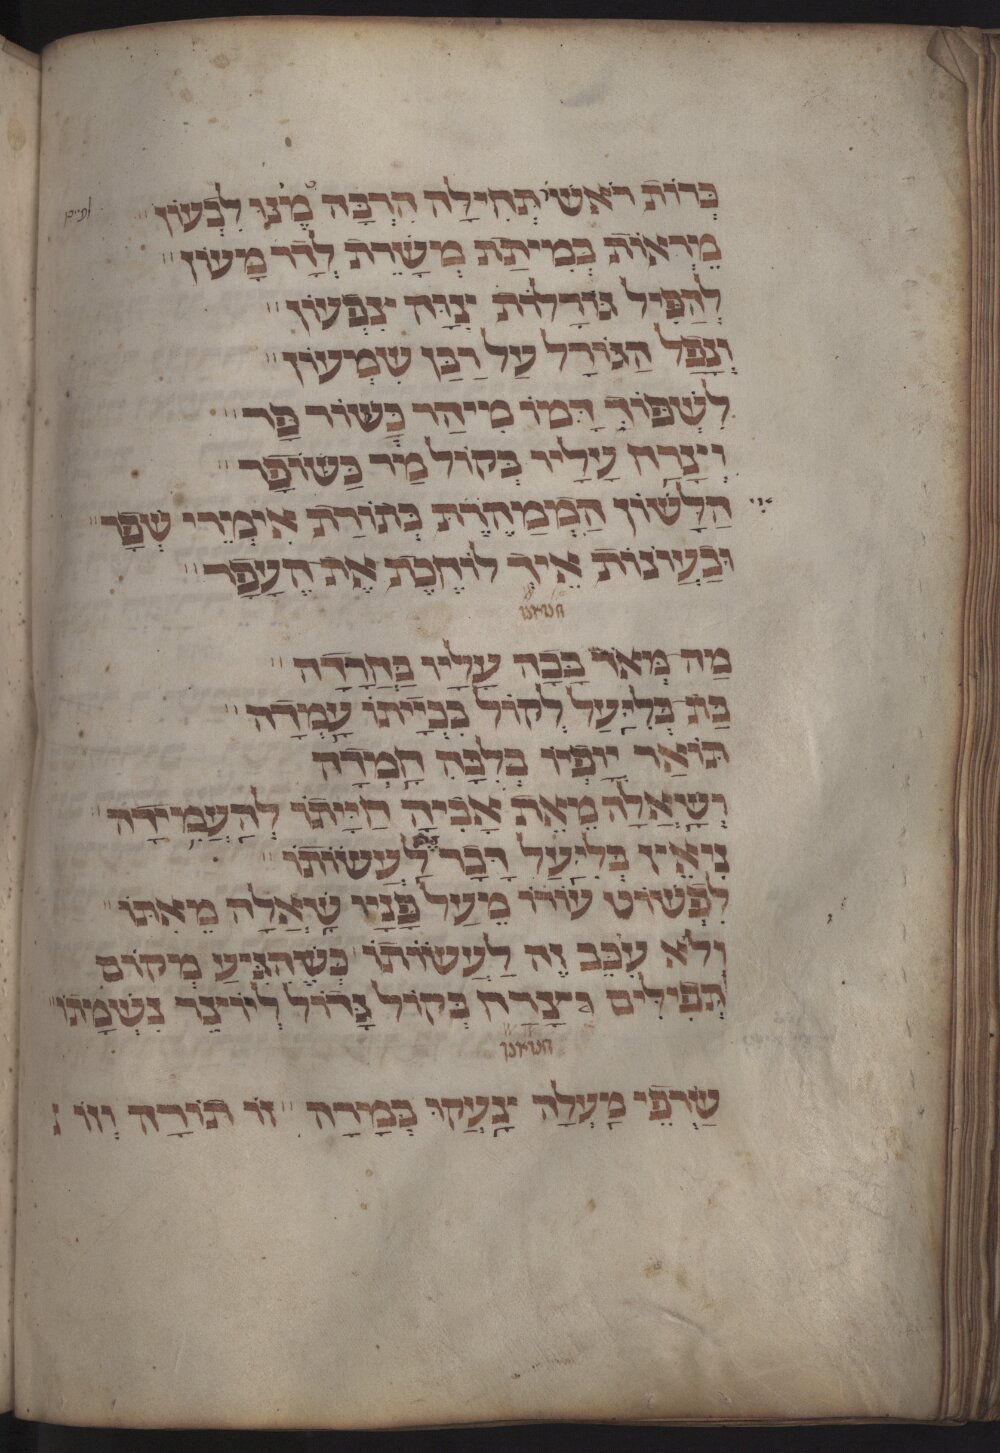 כְּרוֹת רֹאשׁ תְּחִילָה הִרְבָּה מֶנּוּ לִבְעוֹן
מֵרְאוֹת בְּמִיתַת מְשָׁרֵת לְדָר מָעוֹן
לְהַפִּיל גּוֹרָלוֹת יְצַוֶּה צִפְעוֹן
וְנָפַל הַגּוֹרָל עַל רַבַּן שִׁמְעוֹן
לִשְׁפּוֹךְ דָּמוֹ מִיהַר כְּשׁוֹר פָּר
וְיצָרַח עָלָיו בְּקוֹל מַר כַּשּׁוֹפָר
הַלָּשׁוֹן הַמְּמַהֶרֶת בְּתוֹרַת אִימְרֵי שֶׁפָר
וּבַעֲוֹנוֹת אֵיךְ לוֹחֶכֶת אֶת הֶעָפָר
חטאנו
מַה מְּאֹד בָּכָה עָלָיו בַּחֲרָדָה
בַּת בְּלִיַּעַל לְקוֹל בִּכְיָיתוֹ עָמְדָה
תּוֹאַר יָופְיוֹ בְּלִבָּהּ חָמְדָה
וְשָׁאֲלָה מֵאֵת אָבִיהָ חַיָּתוֹ לְהַעֲמִידָה
נִיאֵץ בְּלִיַּעַל דָּבָר לַעֲשׂוֹתוֹ
לִפְשׁוֹט עוֹרוֹ מֵעַל פָּנָיו שָׁאֲלָה מֵאִתּוֹ
וְלֹא עִכֵּב זֶה לַעֲשׂוֹתוֹ כְּשֶׁהִגִּיעַ מְקוֹם
תְּפִילִּים צָרַח בְּקוֹל גָּדוֹל לְיוֹצֵר נִשְׁמָתוֹ
חטאנו
שַׂרְפֵי מַעְלָה יצָעֲקוּ בְּמָרָה זוֹ תוֹרָה וְזוֹ